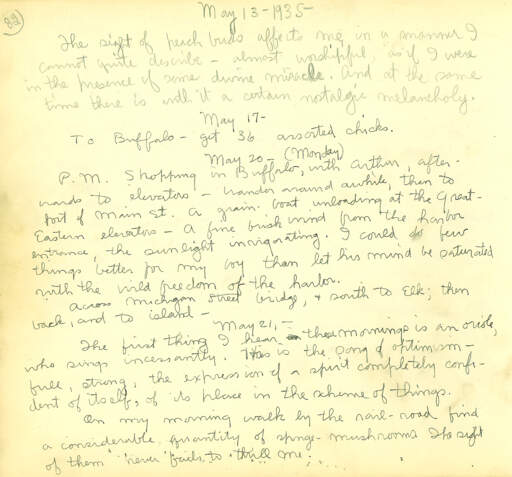 82
May 13 - 1935 -
The sight of peach buds affects me in a manner I
cannot quite describe - almost worshipful, as if I were
in the presence of some divine miracle. And at the same
time there is with it a certain nostalgic melancholy.
May 17 -
To Buffalo - get 36 assorted chicks.
May 20 - (Monday)
P.M. Shopping in Buffalo, with Arthur, after-
wards to elevators - wander around awhile, then to
foot of Main St. A grain-boat unloading at the Great-
Eastern elevators - A fine brisk wind from the harbor
entrance, the sunlight invigorating. I could do few
things better for my boy than let his mind be saturated
with the wild freedom of the harbor.
Across Michigan Street bridge, & south to Elk; then
back, and to island -
May 21, -
The first thing I hear these mornings is an oriole,
who sings incessantly. His is the song of optimism -
full, strong, the expression of a spirit completely confi-
dent of itself, of its place in the scheme of things.
On my morning walk by the rail-road find
a considerable quantity of sponge-mushrooms. The sight
of them never fails to thrill me.